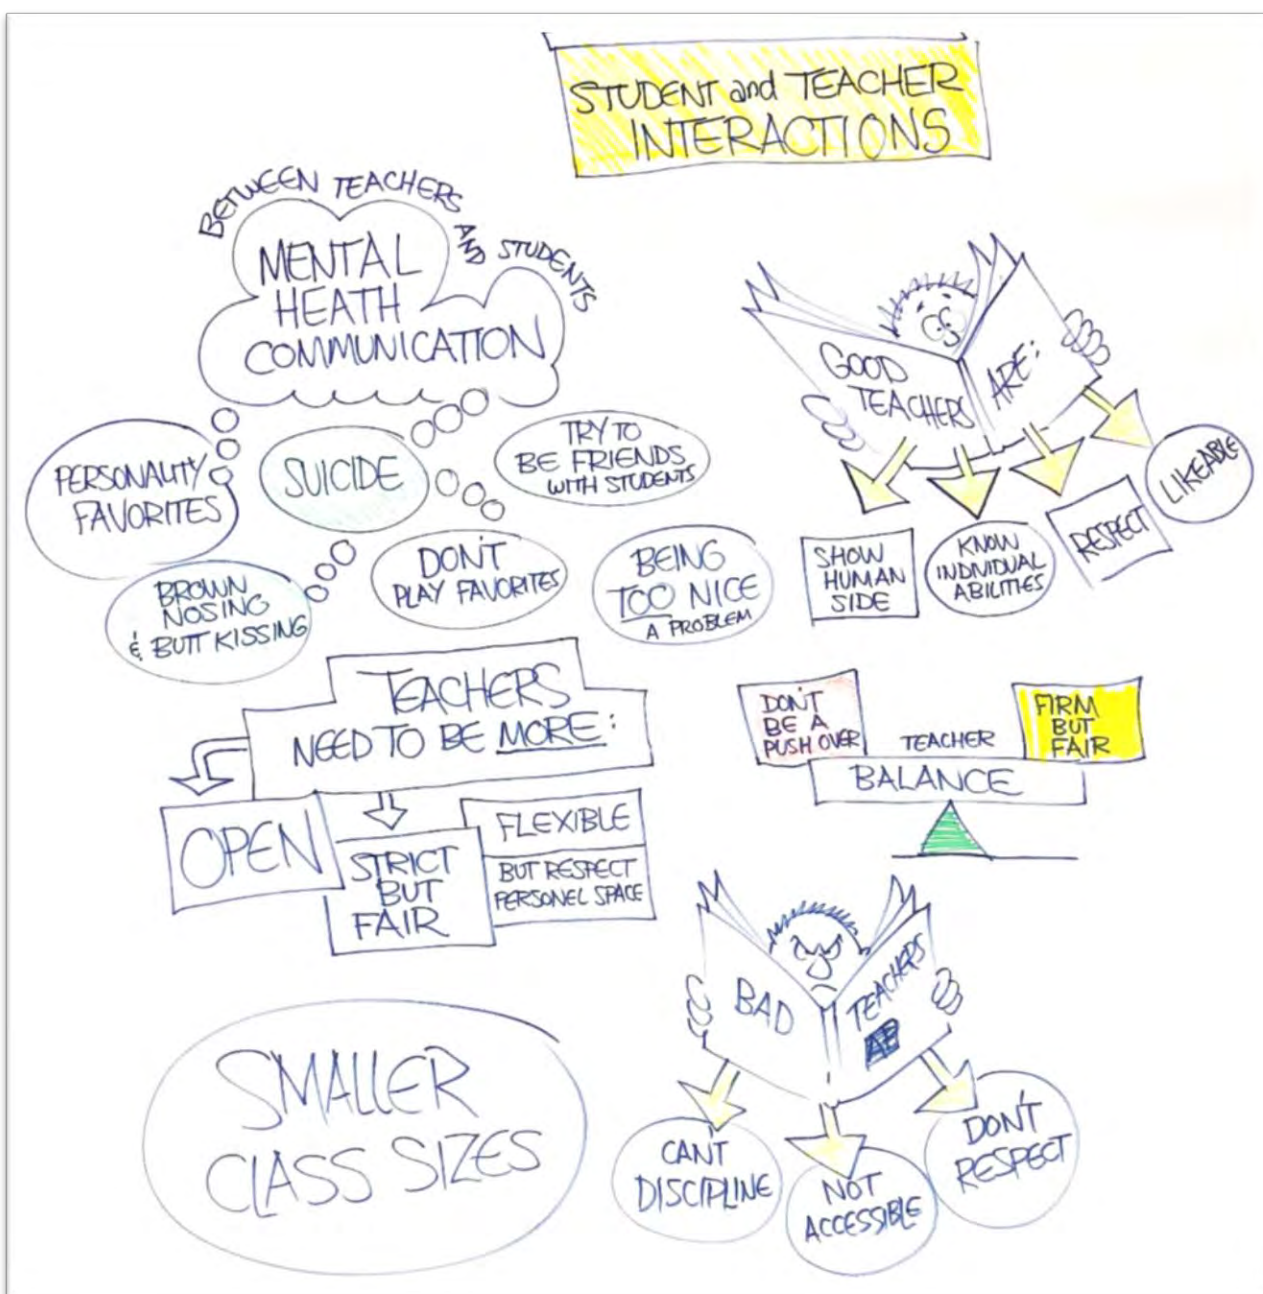 STUDENT and TEACHER
INTERACTIONS
BETWEEN TEACHERS AND STUDENTS
MENTAL
HEATH
COMMUNICATION
PERSONALITY
FAVORITES
SUICIDE
TRY TO
BE FRIENDS
WITH STUDENTS
BROWN
NOSING
& BUTT KISSING
DON'T
PLAY FAVORITES
BEING
TOO NICE
A PROBLEM
GOOD
TEACHERS
ARE:
SHOW
HUMAN
SIDE
KNOW
INDIVIDUAL
ABILITIES
RESPECT
LIKEABLE
TEACHERS
NEED TO BE MORE:
OPEN
STRICT
BUT
FAIR
FLEXIBLE
BUT RESPECT
PERSONEL SPACE
DON'T
BE A
PUSH OVER
TEACHER
FIRM
BUT
FAIR
BALANCE
BAD
TEACHERS
SMALLER
CLASS SIZES
CAN'T
DISCIPLINE
NOT
ACCESSIBLE
DON'T
RESPECT